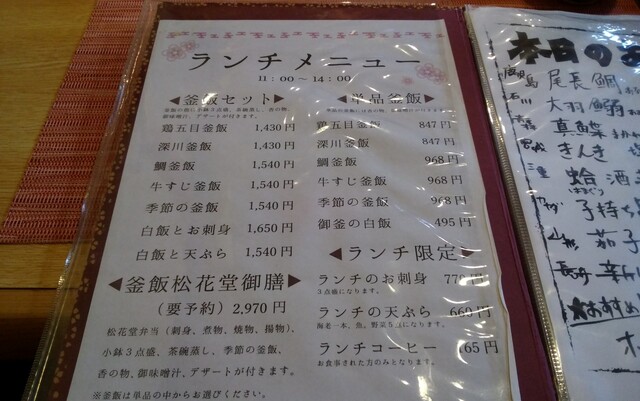 ランチメニュー
11：00～14：00
◀釜飯セット▶
釜飯の他に小鉢３点盛、茶碗蒸し、香の物、
御味噌汁、デザートが付きます。
鶏五目釜飯 1,430円
深川釜飯 1,430円
鯛釜飯 1,540円
牛すじ釜飯 1,540円
季節の釜飯 1,540円
白飯とお刺身 1,650円
白飯と天ぷら 1,540円
◀釜飯松花堂御膳▶
（要予約）2,970円
松花堂弁当（刺身、煮物、焼物、揚物）、
小鉢３点盛、茶碗蒸し、季節の釜飯、
香の物、御味噌汁、デザートが付きます。
※釜飯は単品の中からお選びください。
◀単品釜飯▶
鶏五目釜飯 847円
深川釜飯 847円
鯛釜飯 968円
牛すじ釜飯 968円
季節の釜飯 968円
御釜の白飯 495円
◀ランチ限定▶
ランチのお刺身 770円
３点盛になります。
ランチの天ぷら 660円
海老一本、魚、野菜５点になります。
ランチコーヒー 165円
お食事された方のみとなります。
本日のお
鹿児島 尾長鯛
石川 大羽鰯
真鰈
きんき
蛤 酒
子持ち
山形 茄子
長野 新
おすすめ